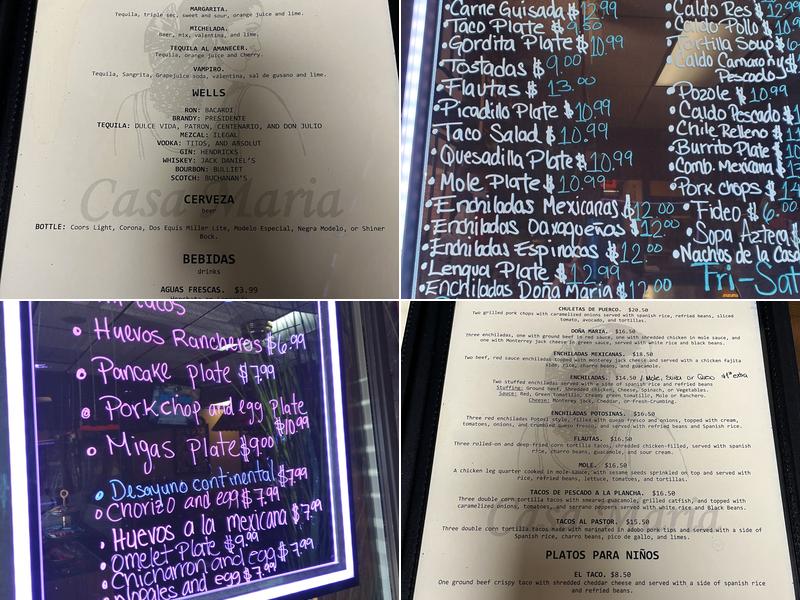 MARGARITA.
Tequila, triple sec, sweet and sour, orange juice and lime.
MICHELADA.
Beer, mix, valentina, and lime.
TEQUILA AL AMANECER.
Tequila, orange juice and Cherry.
VAMPIRO.
Tequila, Sangrita, Grapejuice soda, valentina, sal de gusano and lime.
WELLS
RON: BACARDI
BRANDY: PRESIDENTE
TEQUILA: DULCE VIDA, PATRON, CENTENARIO, AND DON JULIO
MEZCAL: ILEGAL
VODKA: TITOS, AND ABSOLUT
GIN: HENDRICKS
WHISKEY: JACK DANIEL'S
BOURBON: BULLIET
SCOTCH: BUCHANAN'S
Casa Maria
CERVEZA
beer
BOTTLE: Coors Light, Corona, Dos Equis Miller Lite, Modelo Especial, Negra Modelo, or Shiner
Bock.
BEBIDAS
drinks
AGUAS FRESCAS. $3.99
• Carne Guisada $12.99
• Taco Plate $9.50
• Gordita Plate $10.99
• Tostadas $9.00
• Flautas $13.00
• Picadillo Plate $10.99
• Taco Salad $10.99
• Quesadilla Plate $10.99
• Mole Plate $10.99
• Enchiladas Mexicanas $12.00
• Enchiladas Oaxaqueñas $12.00
• Enchiladas Espinacas $12.00
• Lengua Plate $12.99
• Enchiladas Doña Maria $12.00
• Caldo Res $12.99
• Caldo Pollo $10.
• Tortilla Soup $6.
• Caldo Camaron y
Pescado $
• Pozole $10.99
• Caldo Pescado $
• Chile Relleno $11
• Burrito Plate $10
• Comb. Mexicana $
• Pork chops $14
• Fideo $6.00
• Sopa Azteca $
• Nachos de la Casa
Fri-Sat
• Huevos Rancheros $6.99
• Pancake Plate $7.99
• Porkchop and egg Plate
$10.99
• Migas Plate $9.00
• Desayuno continental $7.99
• Chorizo and egg $7.99
• Huevos a la mexicana $7.99
• Omelet Plate $9.99
• Chicharron and egg $7.99
• Nopales and egg $7.99
CHULETAS DE PUERCO. $20.50
Two grilled pork chops with caramelized onions served with spanish rice, refried beans, sliced
tomato, avocado, and tortillas.
DOÑA MARIA. $16.50
Three enchiladas, one with ground beef in red sauce, one with shredded chicken in mole sauce, and
one with Monterrey jack cheese in green sauce, served with white rice and black beans.
ENCHILADAS MEXICANAS. $18.50
Two beef, red sauce enchiladas topped with monterey jack cheese and served with a chicken fajita
side, rice, charro beans, and guacamole.
ENCHILADAS. $14.50 / Mole, Suiza or Queso $1⁰⁰ extra
Two stuffed enchiladas served with a side of spanish rice and refried beans
Stuffing: Ground beef, Shredded chicken, Cheese, Spinach, or Vegetables.
Sauce: Red, Green tomatillo, Creamy green tomatillo, Mole or Ranchero.
Cheese: Monterey jack, Cheddar, or Fresh-Crumbing.
ENCHILADAS POTOSINAS. $16.50
Three red enchiladas Potosi style, filled with queso fresco and onions, topped with cream,
tomatoes, onions, and crumbled queso fresco, and served with refried beans and Spanish rice.
FLAUTAS. $16.50
Three rolled-on and deep-fried corn tortilla tacos, shredded chicken-filled, served with spanish
rice, charro beans, guacamole, and sour cream.
MOLE. $16.50
A chicken leg quarter cooked in mole sauce, with sesame seeds sprinkled on top and served with
rice, refried beans, lettuce, tomatoes, and tortillas.
TACOS DE PESCADO A LA PLANCHA. $16.50
Three double corn tortilla tacos with smeared guacamole, grilled catfish, and topped with
caramelized onions, tomatoes, and serrano peppers served with white rice and Black Beans.
TACOS AL PASTOR. $15.50
Three double corn tortilla tacos made with marinated in adobo pork tips and served with a side of
Spanish rice, charro beans, pico de gallo, and limes.
PLATOS PARA NIÑOS
EL TACO. $8.50
One ground beef crispy taco with shredded cheddar cheese and served with a side of spanish rice
and refried beans.